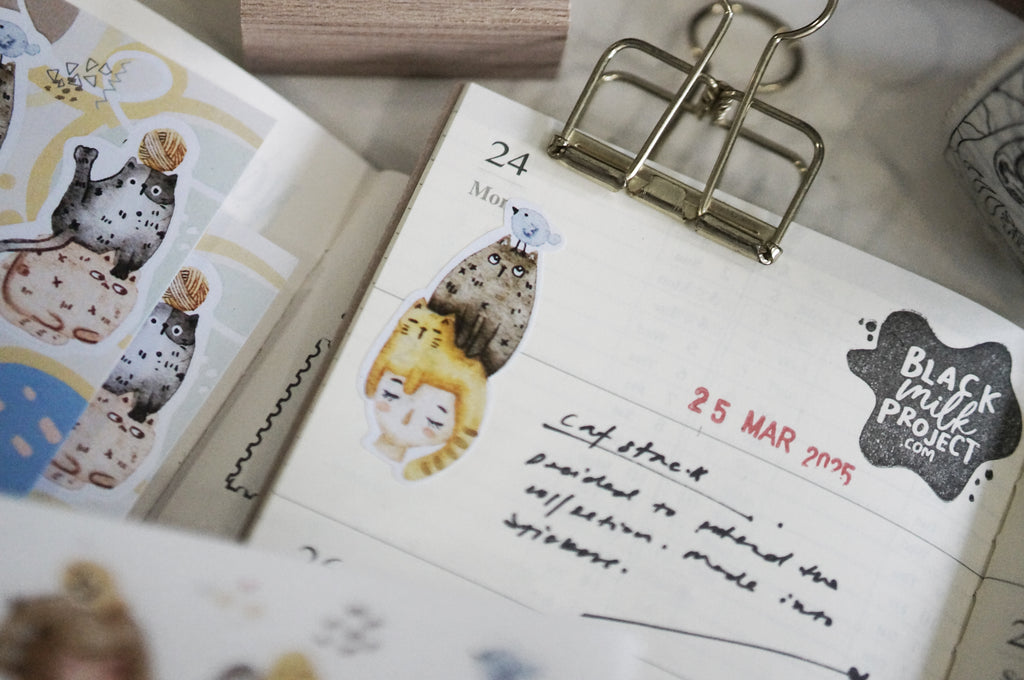 24
Mon
25 MAR 2025
BLACK
milk
PROJECT
.COM
cat stack
Decided to extend the
collection. made into
stickers.